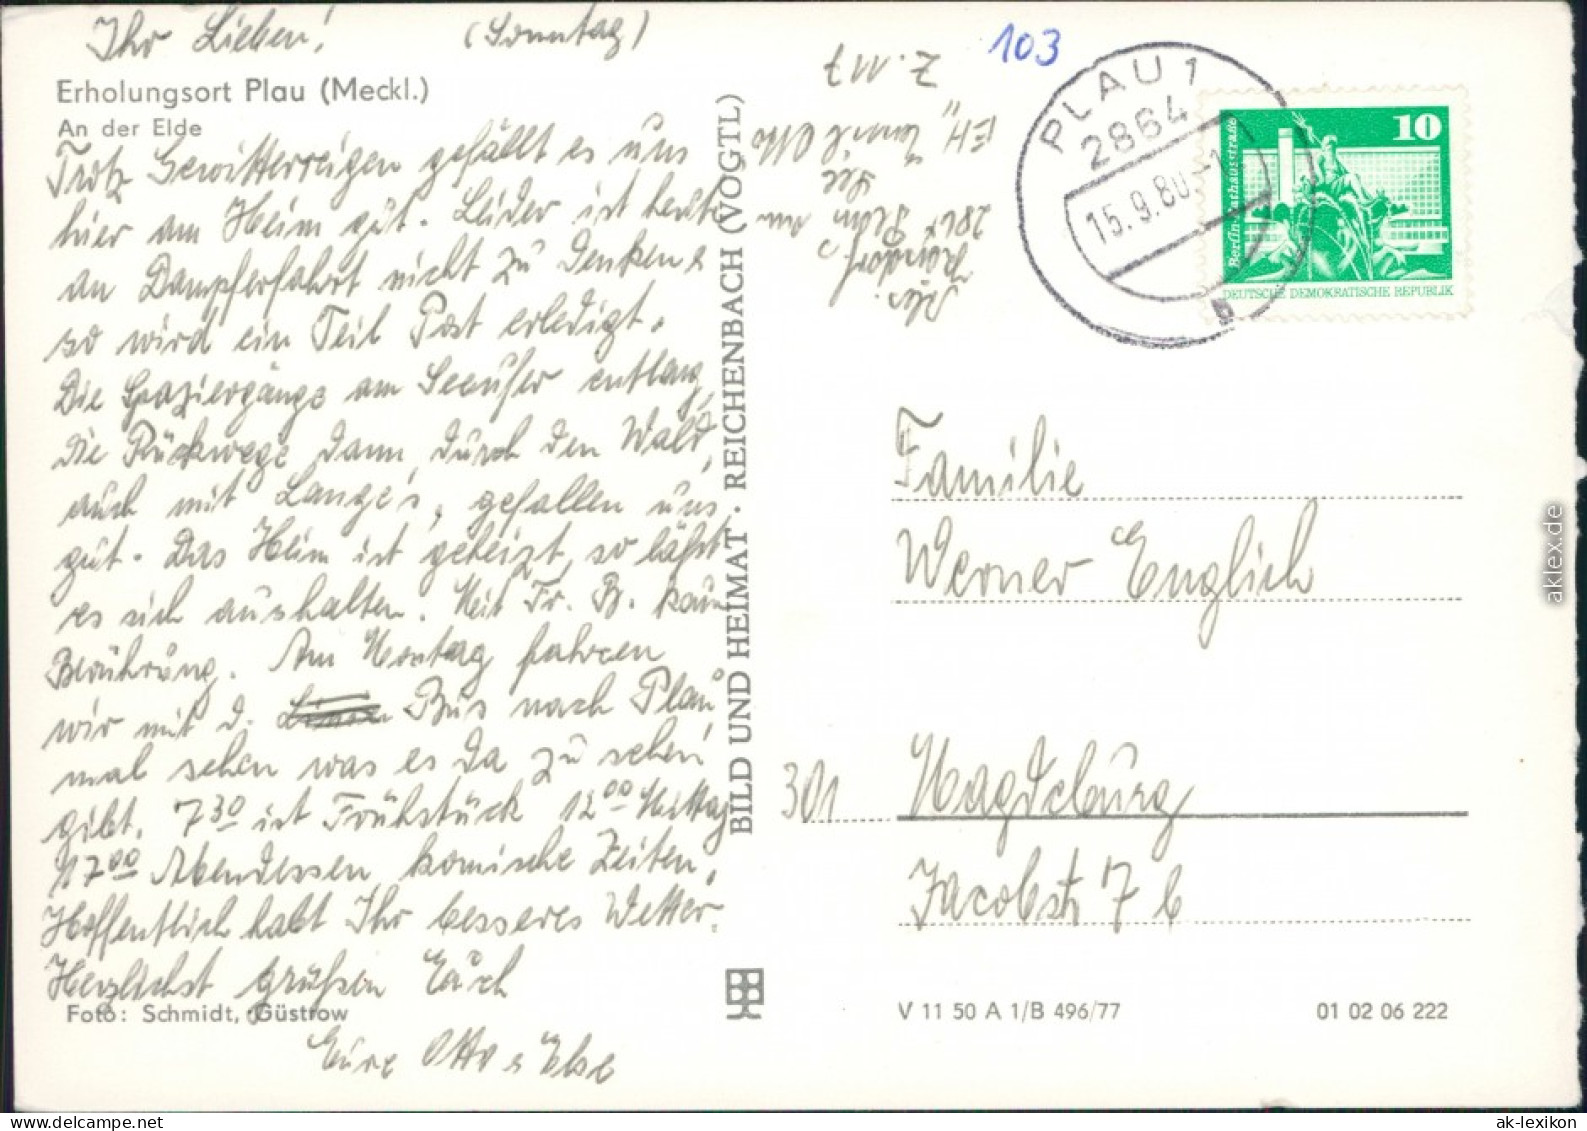 Ihr Lieben! (Sonntag)
Erholungsort Plau (Meckl.)
An der Elde
Trotz Gewitterreigen gefällt es uns
hier am Heim gut. Leider ist heute
an Dampferfahrt nicht zu denken &
so wird ein Teil Post erledigt.
Die Spaziergänge am Seeufer entlang,
die Rückwege dann durch den Wald,
auch mit Lange's, gefallen uns
gut. Das Heim ist geheizt, so läßt
es sich aushalten. Mit Fr. B. kaum
Berührung. Am Montag fahren
wir mit d. Bus nach Plau,
mal sehen was es da zu sehen
gibt. 7 30 ist Frühstück 12 00 Mittag
17 00 Abendessen, komische Zeiten.
Hoffentlich habt Ihr besseres Wetter.
Herzlichst grüßen Euch
Foto: Schmidt, Güstrow
Eure Otto & Else
BILD UND HEIMAT · REICHENBACH (VOGTL)
Z. Wt
2861 Plau am
See
103
PLAU 1
2864
15.9.80
b
10
DEUTSCHE DEMOKRATISCHE REPUBLIK
Familie
Werner Englich
301 Magdeburg
Jacobstr 7 b
V 11 50 A 1/B 496/77
01 02 06 222
aklex.de
ak-lexikon